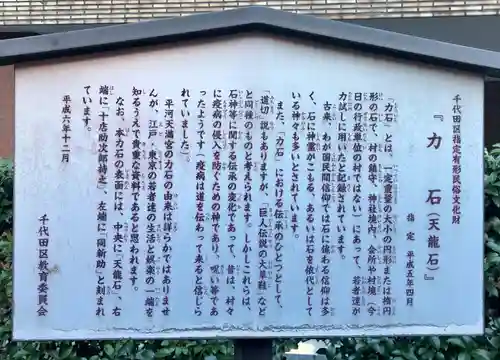 千代田区指定有形民俗文化財
『力石(天龍石)』
指定 平成五年四月
「力石」とは、一定重量の大小の円形または楕円
形の石で、村の鎮守、神社境内、会所や村境(今
日の行政単位の村ではない)にあって、若者達が
力試しに用いたと記録されています。
古来、わが国民間信仰では石に係わる信仰は多
く、石に神霊がこもる、あるいは石を依代として
いる神々も多いとされています。
また、「力石」における伝承のひとつとして、
「道切」説もありますが、「巨人伝説の大草鞋」など
と同種のものと考えられます。しかしこれらは、
石神等に関する伝承の変化であって、昔は、村々
に疫病の侵入を防ぐための神であり、呪い等であ
ったようです(疫病は道を伝わって来ると信じら
れていました)。
平河天満宮の力石の由来は詳らかではありませ
んが、江戸・東京の若者達の生活と娯楽の一端を
知るうえで貴重な資料であると思われます。
なお、本力石の表面には、中央に「天龍石」、右
端に「十店助次郎持之」、左端に「同新助」と刻まれ
ています。
平成六年十二月
千代田区教育委員会